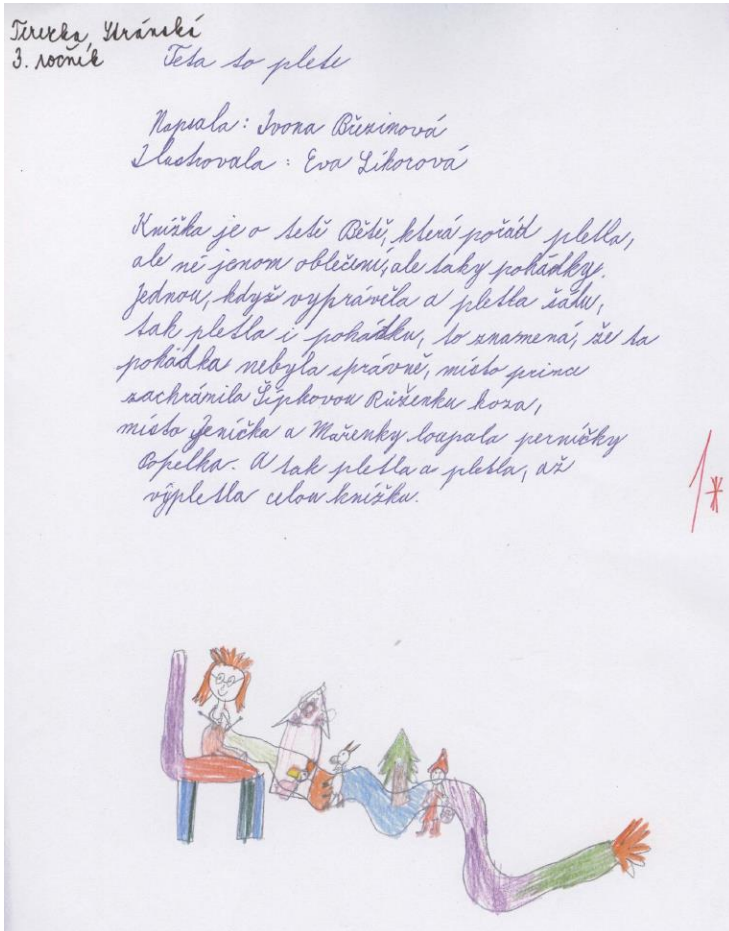 Terezka Stránská
3. ročník
Teta to plete
Napsala: Ivona Březinová
Ilustrovala: Eva Sýkorová
Knížka je o tetě Bětě, která pořád pletla,
ale né jenom oblečení, ale taky pohádky.
Jednou, když vyprávěla a pletla šálu,
tak pletla i pohádku, to znamená, že ta
pohádka nebyla správně, místo prince
zachránila Šípkovou Růženku koza,
místo Jeníčka a Mařenky loupala perníčky
Popelka. A tak pletla a pletla, až
vypletla celou knížku.
1*